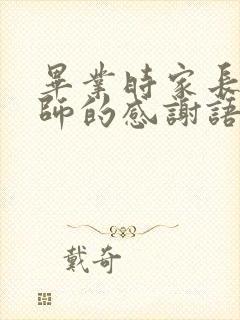 畢業时家長
师的感謝語
戴奇